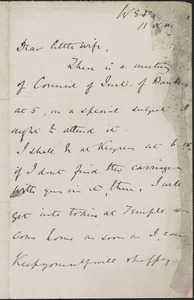 W Edy
11 a.m.
Dear little Wife,
There is a meeting
of Council of Inst. of Bankers
at 5, on a special subject. I
ought to attend it.
I shall be at Keyser at 6.15
if I dont find the carriage
with you in it, there, I will
get into train at Temple &
come home as soon as I can
Keep yourself well & happy